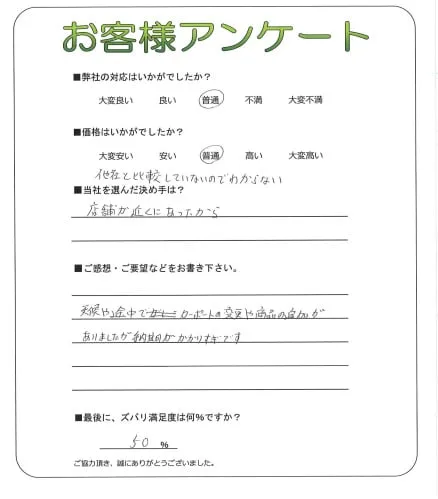 お客様アンケート
■弊社の対応はいかがでしたか？
大変良い 良い 普通 不満 大変不満
■価格はいかがでしたか？
大変安い 安い 普通 高い 大変高い
他社と比較していないのでわからない
■当社を選んだ決め手は？
店舗が近くになったから
■ご感想・ご要望などをお書き下さい。
天候や途中で カーポートの変更や商品の追加が
ありましたが納期がかかりすぎです
■最後に、ズバリ満足度は何％ですか？
50 %
ご協力頂き、誠にありがとうございました。